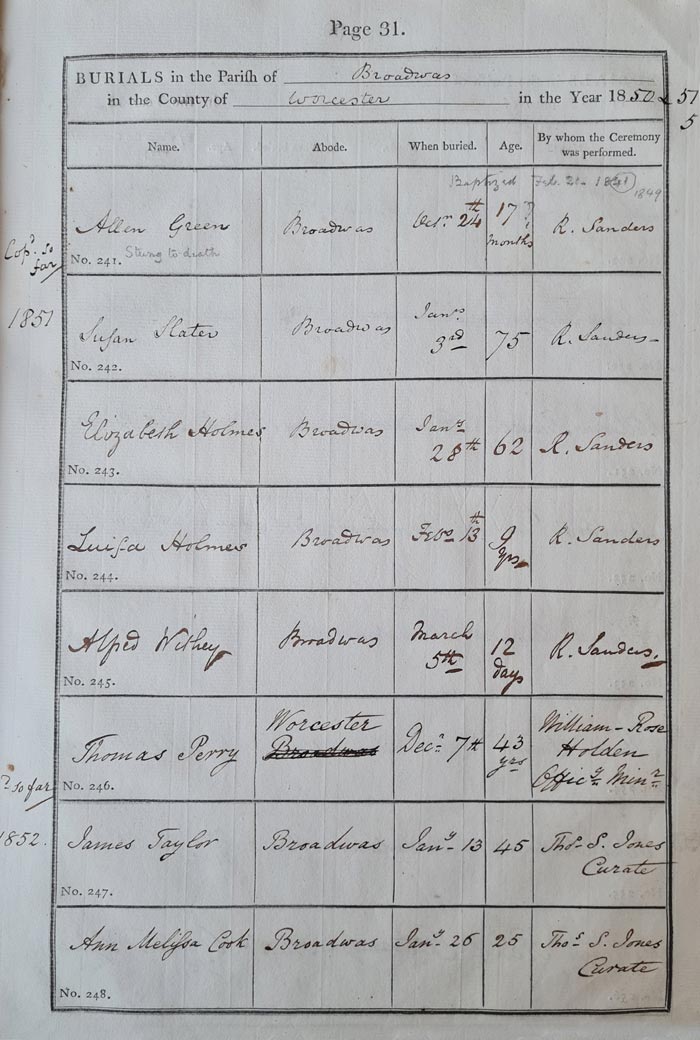 Page 31.
BURIALS in the Parish of Broadwas
in the County of Worcester in the Year 1850 & 51
5
Name. Abode. When buried. Age. By whom the Ceremony was performed.
Baptized Feb. 1849
Allen Green Broadwas Octr. 24th 17 ? months R. Sanders
No. 241. Stung to death
Copd. so far
1851
Susan Slater Broadwas Jany. 3rd 75 R. Sanders
No. 242.
Elizabeth Holmes Broadwas Jany. 28th 62 R. Sanders
No. 243.
Luisa Holmes Broadwas Feby. 13th 9 yrs R. Sanders
No. 244.
Alfred Withey Broadwas March 5th 12 days R. Sanders.
No. 245.
Thomas Perry Worcester Broadwas Decr. 7th 43 yrs William Rose Holden Officg. Minr.
No. 246.
so far
1852.
James Taylor Broadwas Jany. 13 45 Thos. S. Jones Curate
No. 247.
Ann Melissa Cook Broadwas Jany. 26 25 Thos. S. Jones Curate
No. 248.